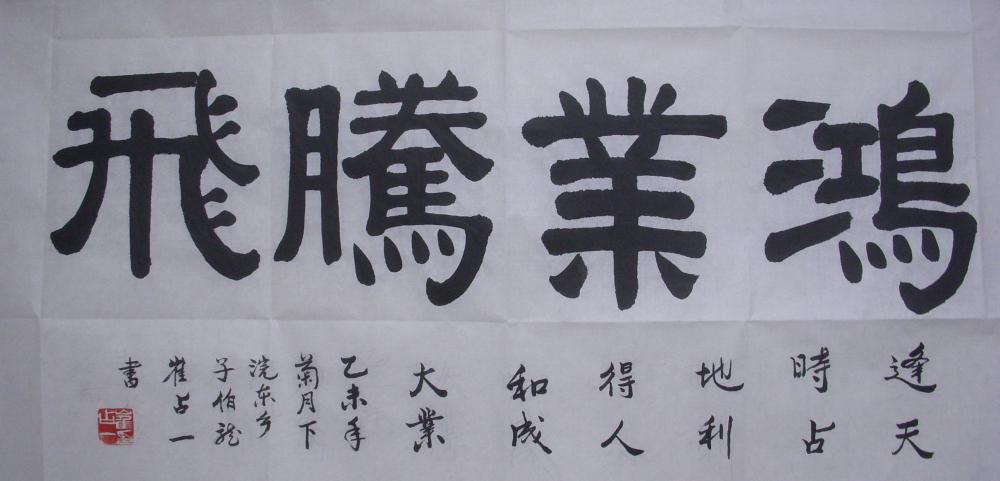 鴻業騰飛
逢天
時占
地利
得人
和成
大業
乙未年
菊月下
浣东乡
子伯龙
崔占一
書